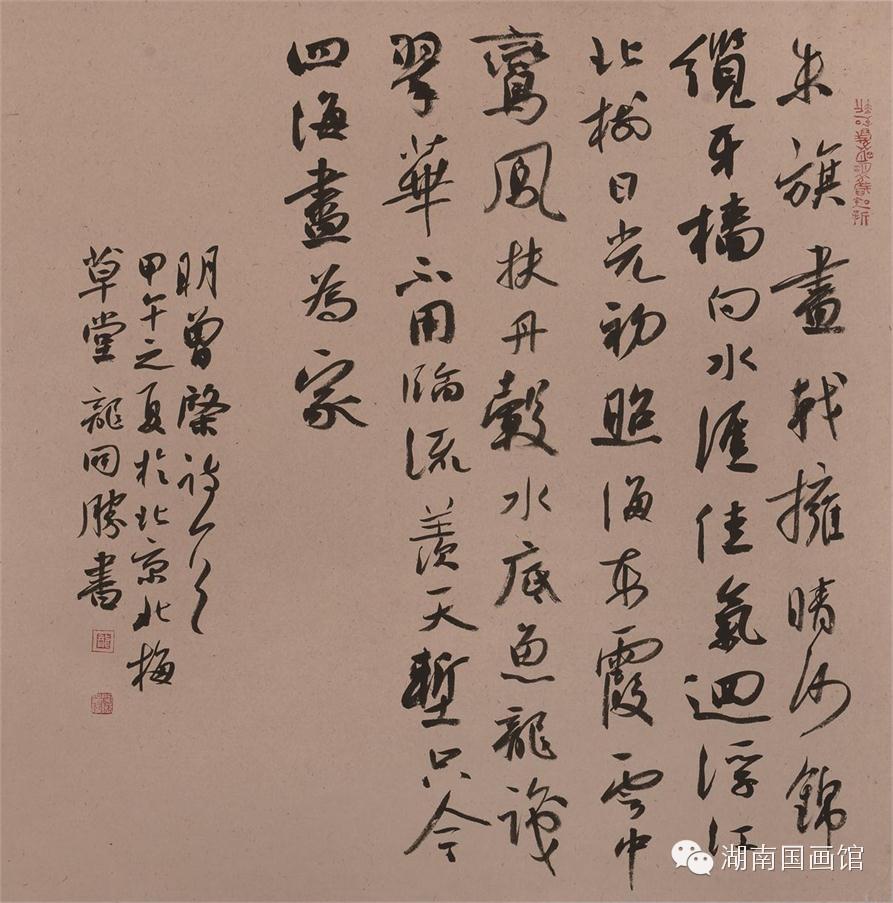 朱旗畫戟擁晴沙錦
纜牙檣向水涯佳氣迥浮江
北樹日光初照海東霞雲中
鸞鳳扶丹轂水底魚龍識
翠華不用臨流羨天塹只今
四海盡為家
明曾棨詩一首
甲午之夏於北京北梅
草堂龍開勝書
湖南国画馆